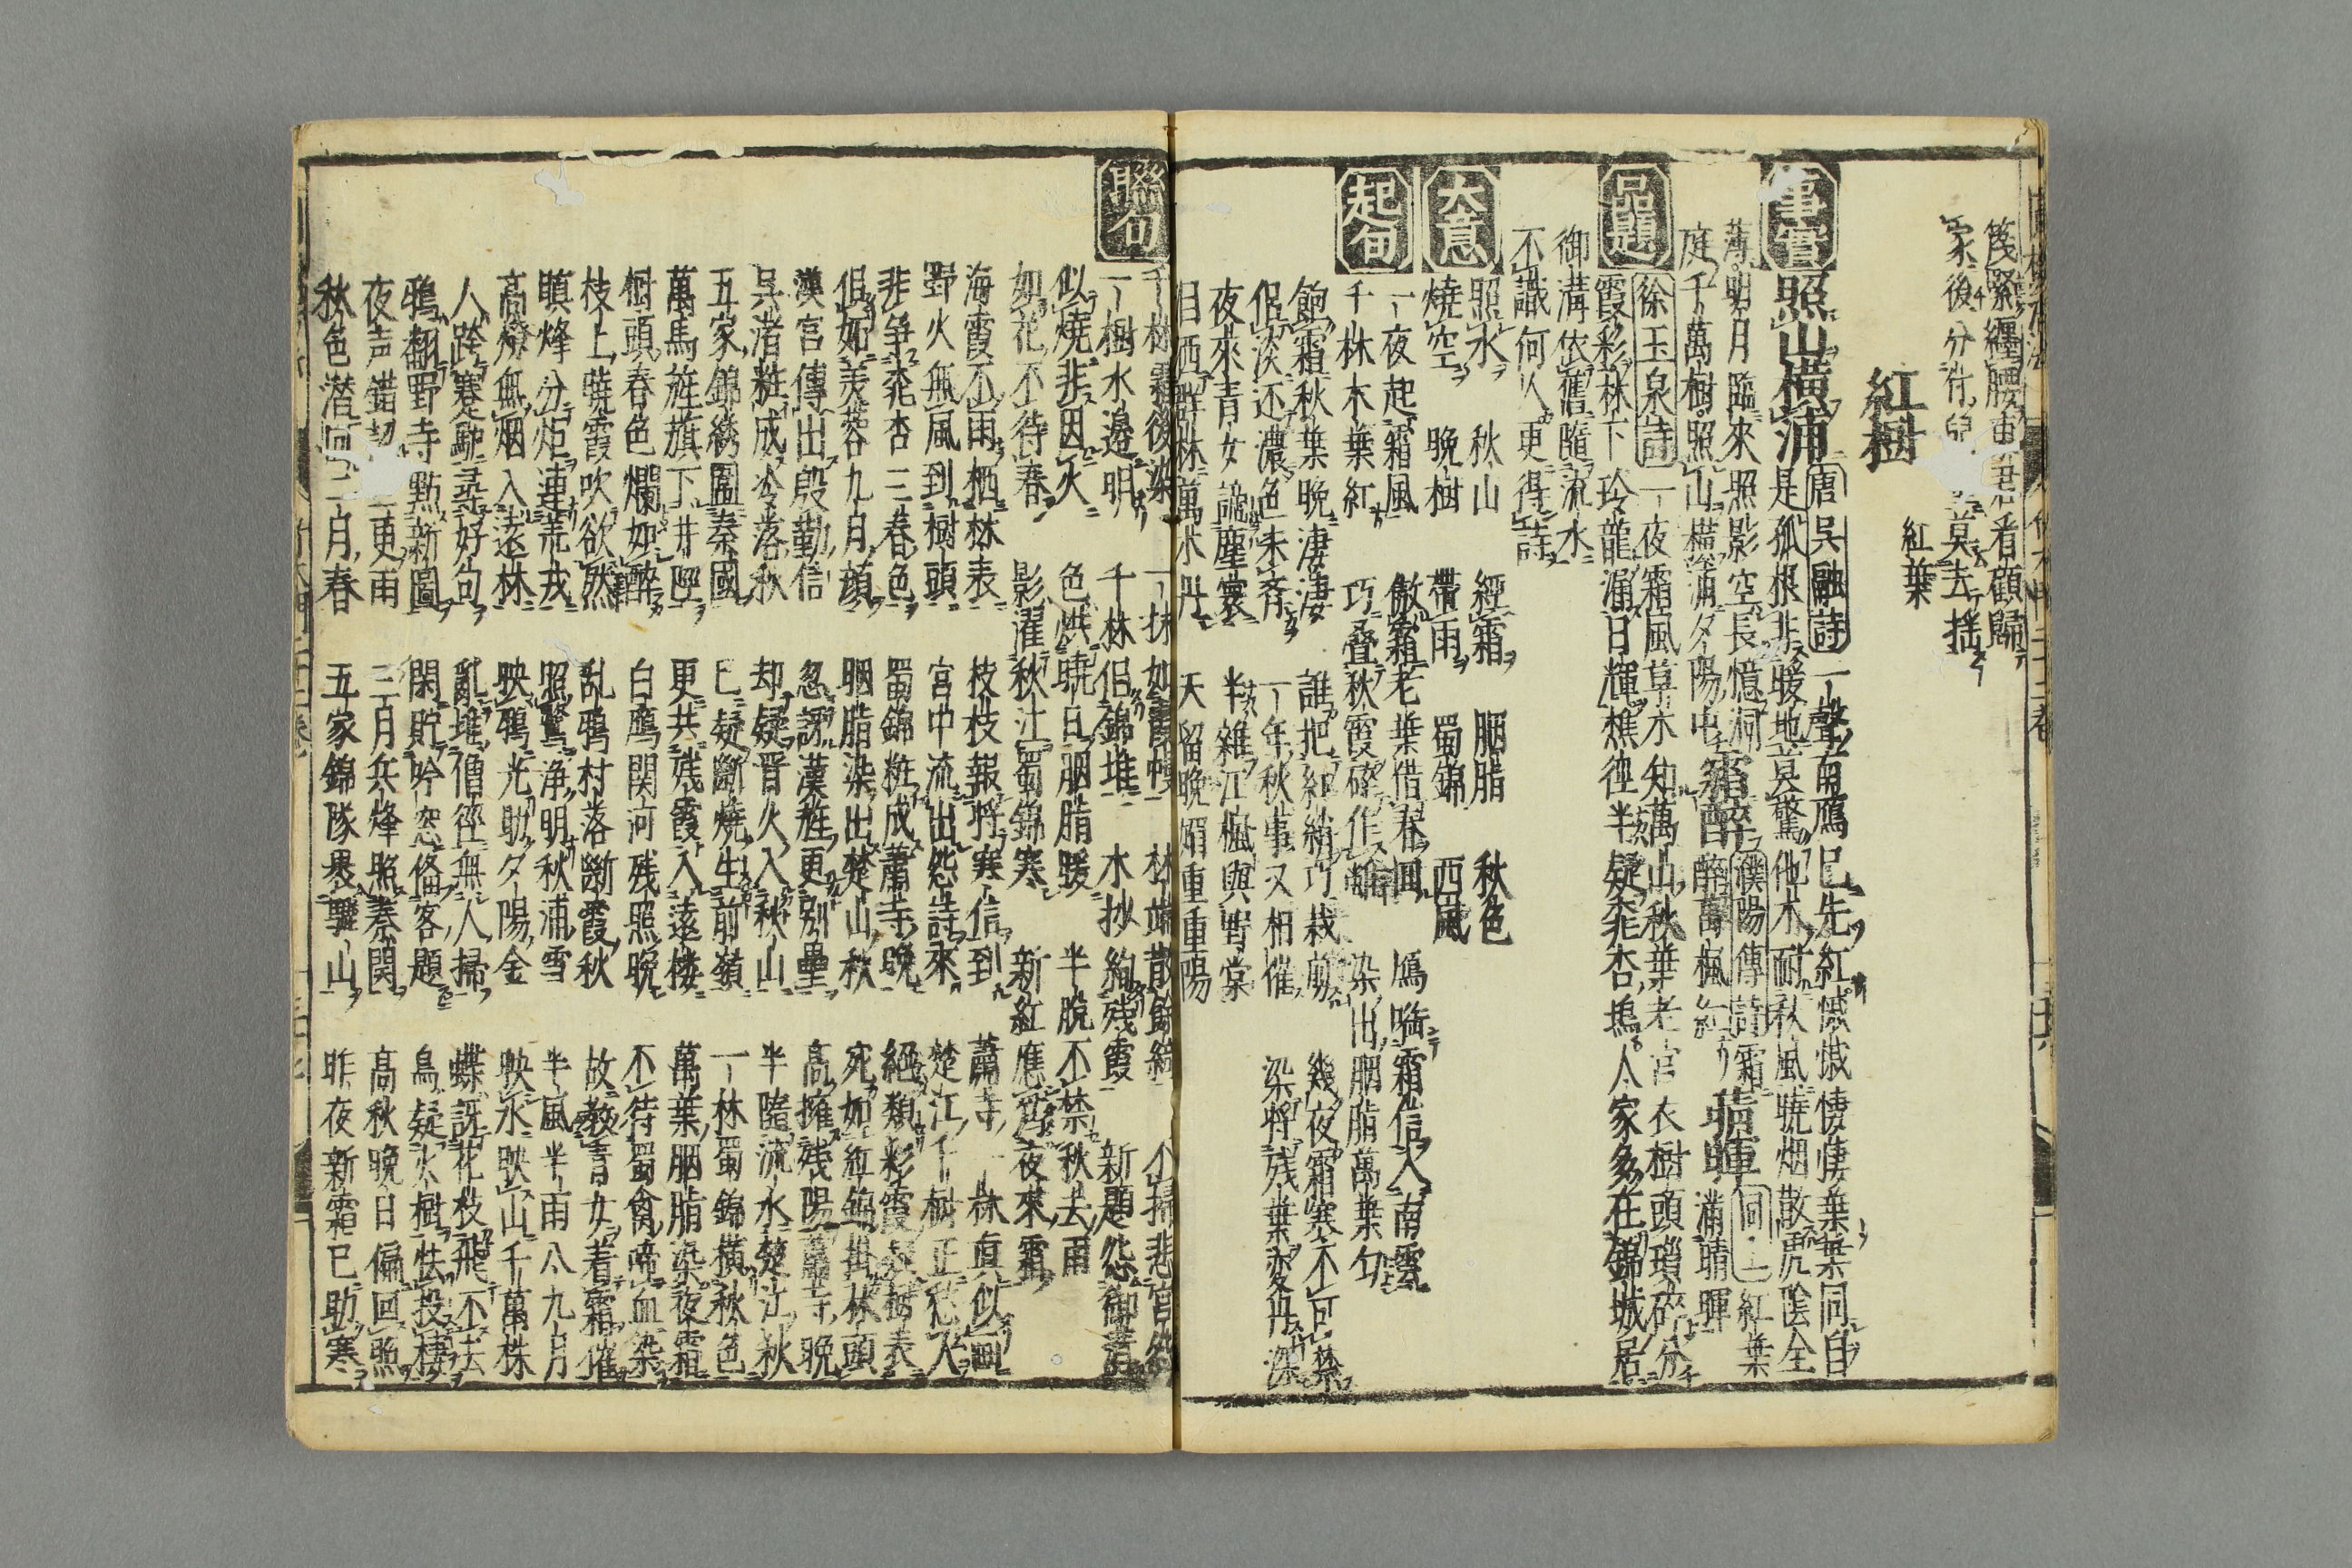 篾緊纏腰更君看顧歸
家後分付兒莫去揺
紅樹
紅葉
事實
照山横浦
唐呉融詩
一聲南鴈已先紅慽慽悽悽葉葉同自
是孤根非暖地莫驚他木耐秋風暁烟散處陰全
薄明月臨來照影空長憶洞
庭千萬樹照山横浦夕陽中
霜醉
濮陽傳詩
霜
醉萬楓紅
晴暉
同上
紅葉
滿晴暉
品題
徐玉泉詩
一夜霜風草木知萬山秋葉老宮衣樹頭瑣碎分
霞彩林下玲瓏漏日輝樵徑半疑桃杏塢人家多在錦城居
御溝依舊隨流水
不識何人更得詩
大意
照水 秋山 經霜 胭脂 秋色
燒空 晩樹 帶雨 蜀錦 西風
起句
一夜起霜風 傲霜老葉借春 鴈啣霜信入南雲
千林木葉紅 巧叠秋霞碎作 染出胭脂萬葉匀
飽霜秋葉晩凄凄 誰把紅綃巧裁剪 幾夜霜寒不可禁
侶淡还濃色未齊 一年秋事又相催 染將残葉変丹深
夜來青女謫塵寰 半雜江楓與野棠
日西群林萬木丹 天留晩媚重重陽
聯句
千林霜後染
一樹水邊明 千林侶錦堆 木抄絢残霞 新題怨御溝
似燒非因火 色洪暁日胭脂暖 半脱不禁秋去雨
如花不待春 影濯秋江蜀錦寒 新紅應為夜來霜
海霞不雨栖林表 枝枝報將寒信到 蕭寺一林真似画
野火無風到樹頭 宮中流出怨詩來 楚江千樹正愁人
非争桃杏三春色 蜀錦粧成蕭寺晩 絕類彩霞棲樹表
侶如芙蓉九月顔 胭脂染出楚山秋 宛如紅錦掛林頭
漢宮傳出殷勤信 忽訝漢旌更別壘 高擁残陽蕭寺晩
呉渚粧成冷落秋 却疑晋火入秋山 半隨流水楚江秋
五家錦綉圍秦國 已疑斷燒生前嶺 一林蜀錦横秋色
萬馬旌旗下井陘 更共残霞入遠楼 萬葉胭脂染夜霜
樹頭春色爛如醉 白鴈関河残照晩 不待蜀禽啼血染
枝上暁霞吹欲然 乱鴉村落断霞秋 故教青女着霜催
瞋烽分炬連荒戍 照鷺浄明秋浦雪 半風半雨八九月
高燎無烟入遠林 映鴉光助夕陽金 映水映山千萬株
人跨蹇馳尋好句 亂堆僧徑無人掃 蝶訝花枝飛不去
鴉翻野寺點新圖 閑貯吟窓俗客題 鳥疑火樹怯投棲
夜声錯認更雨 三月兵烽照秦関 高秋晩日偏回照
秋色潜回二月春 五家錦隊畏驪山 昨夜新霜已助寒